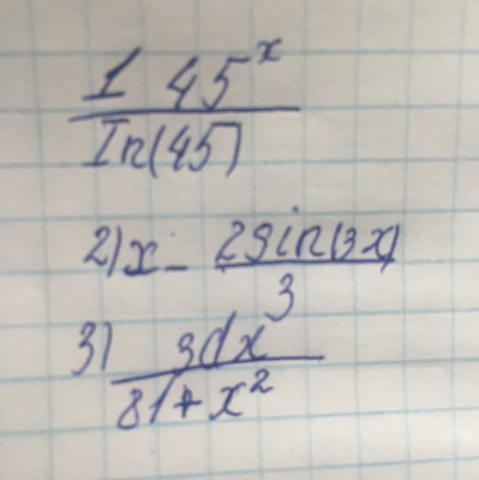 1 45^x
In(45)
2) x - 2sin(3x)
3
3) 3dx
81+x^2